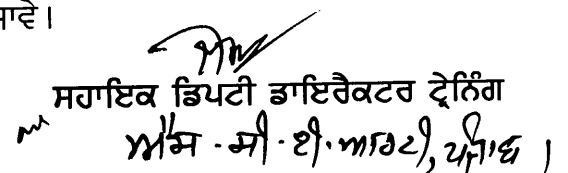 ਜਾਵੇ।
ਸਹਾਇਕ ਡਿਪਟੀ ਡਾਇਰੈਕਟਰ ਟ੍ਰੇਨਿੰਗ
ਐੱਸ.ਸੀ.ਈ.ਆਰਟੀ, ਪੰਜਾਬ।